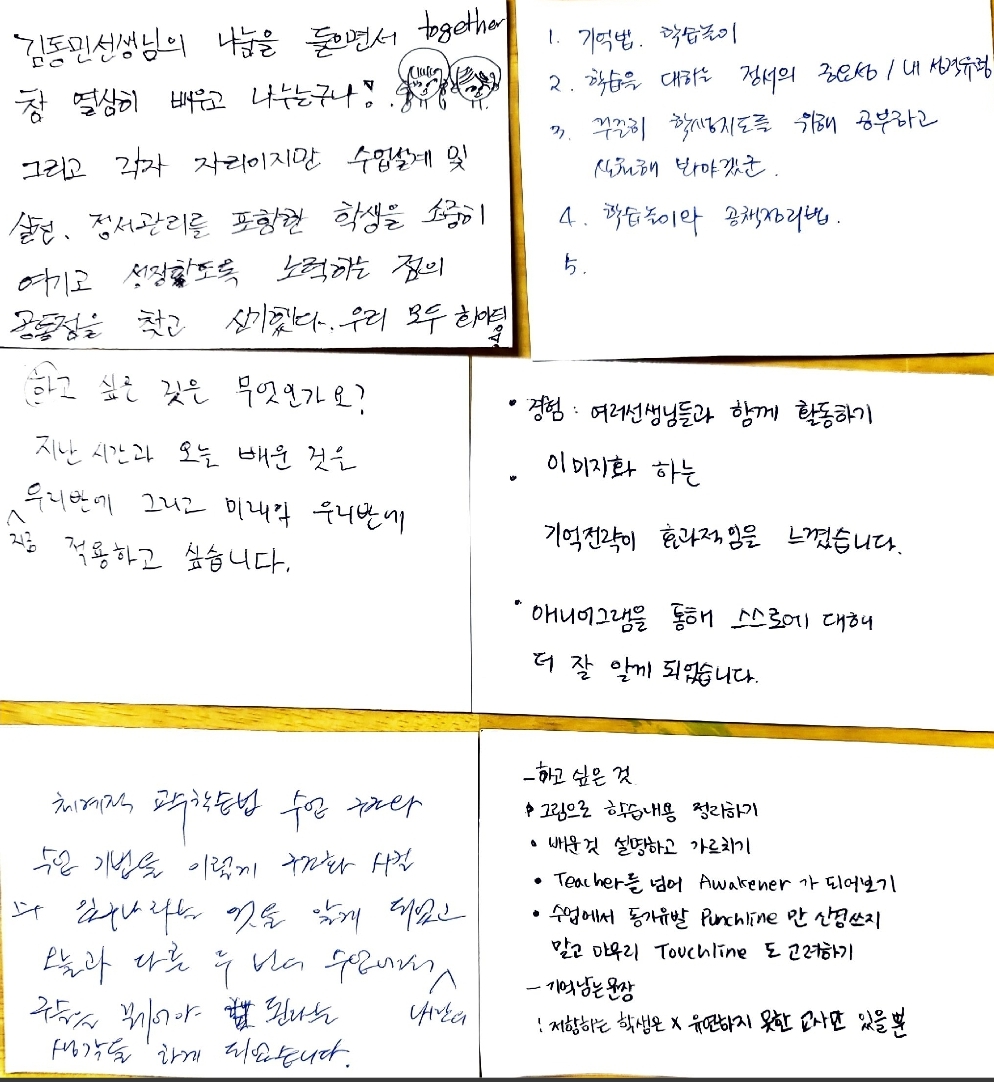 김동민선생님의 나눔을 들으면서 together
참 열심히 배우고 나누는구나!
그리고 각자 자리이지만 수업설계 및
실천, 정서관리를 포함한 학생을 소중히
여기고 성장할도록 노력하는 점의
공통점을 찾고 신기했다.. 우리 모두 화이팅
1. 기억법. 학습놀이
2. 학습을 대하는 정서의 중요성 / 내 성격유형
3. 꾸준히 학생지도를 위해 공부하고
실천해 봐야겠군.
4. 학습놀이와 공책정리법.
5.
하고 싶은 것은 무엇인가요?
지난 시간과 오늘 배운 것을
지금 우리반에 그리고 미래의 우리반에
적용하고 싶습니다.
• 경험 : 여러선생님들과 함께 활동하기
• 이미지화 하는
기억전략이 효과적임을 느꼈습니다.
• 애니어그램을 통해 스스로에 대해
더 잘 알게 되었습니다.
체계적 교수학습법 수업
수업 기법들 이렇게 구조화 시킬
수 있구나 라는 것을 알게 되었고
오늘과 다른 두 번의 수업에서
꿰어야 된다는
생각을 하게 되었습니다.
- 하고 싶은 것
• 그림으로 학습내용 정리하기
• 배운것 설명하고 가르치기
• Teacher를 넘어 Awakener 가 되어보기
• 수업에서 동기유발 Punchline 만 신경쓰지
말고 마무리 Touchline 도 고려하기
- 기억남는 문장
! 저항하는 학생은 X 유연하지 못한 교사만 있을 뿐